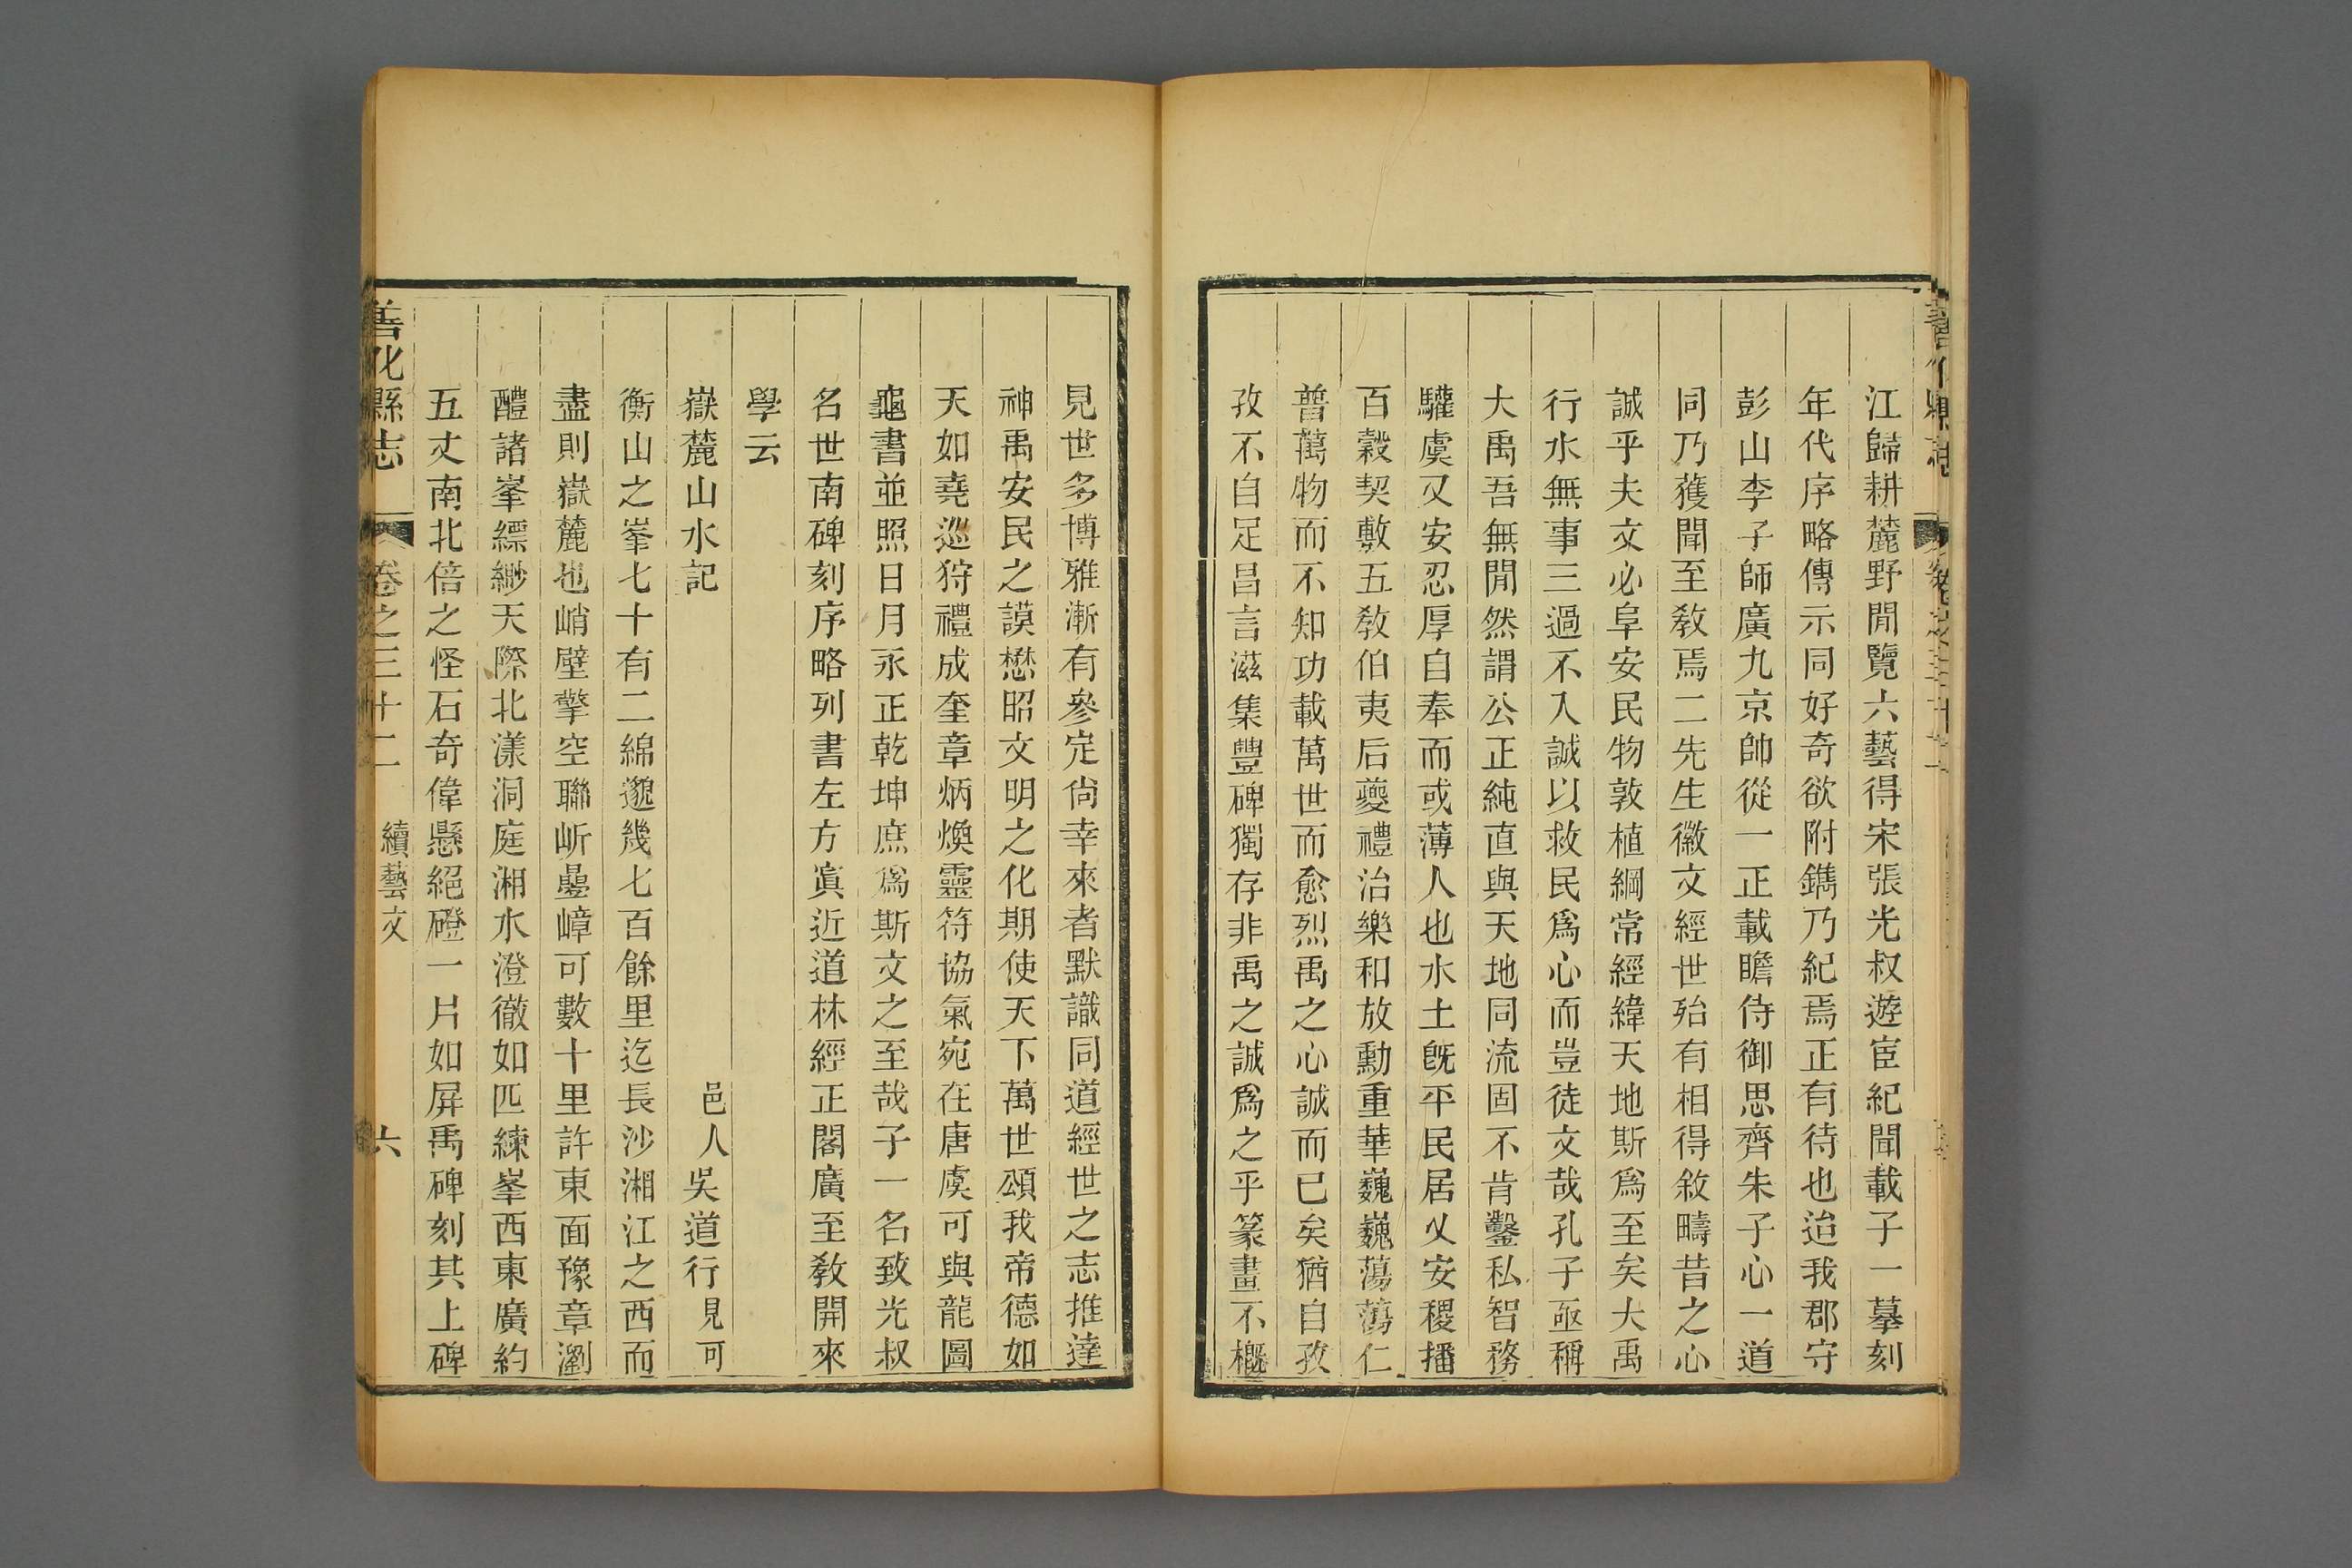 江歸耕麓野閒覽六藝得宋張光叔遊宦紀聞載子一摹刻
年代序略傳示同好奇欲附鐫乃紀焉正有待也迨我郡守
彭山李子師廣九京帥從一正載瞻侍御思齊朱子心一道
同乃獲聞至敎焉二先生徽文經世殆有相得敘疇昔之心
誠乎夫文必阜安民物敦植綱常經緯天地斯爲至矣大禹
行水無事三過不入誠以救民爲心而豈徒文哉孔子亟稱
大禹吾無閒然謂公正純直與天地同流固不肯鑿私智務
驩虞又安忍厚自奉而或薄人也水土旣平民居乂安稷播
百穀契敷五敎伯夷后夔禮治樂和放勳重華巍巍蕩蕩仁
普萬物而不知功載萬世而愈烈禹之心誠而已矣猶自孜
孜不自足昌言滋集豐碑獨存非禹之誠爲之乎篆畫不槪
見世多博雅漸有參定尙幸來者默識同道經世之志推達
神禹安民之謨懋昭文明之化期使天下萬世頌我帝德如
天如堯巡狩禮成奎章炳煥靈符協氣宛在唐虞可與龍圖
龜書並照日月永正乾坤庶爲斯文之至哉子一名致光叔
名世南碑刻序略列書左方眞近道林經正閣廣至敎開來
學云
嶽麓山水記
邑人吳道行見可
衡山之峯七十有二綿邈幾七百餘里迄長沙湘江之西而
盡則嶽麓也峭壁擎空聯岓壘嶂可數十里許東面豫章瀏
醴諸峯縹緲天際北漾洞庭湘水澄徹如匹練峯西東廣約
五丈南北倍之怪石奇偉懸絕磴一片如屏禹碑刻其上碑
善化縣志 卷之三十二 續藝文 六